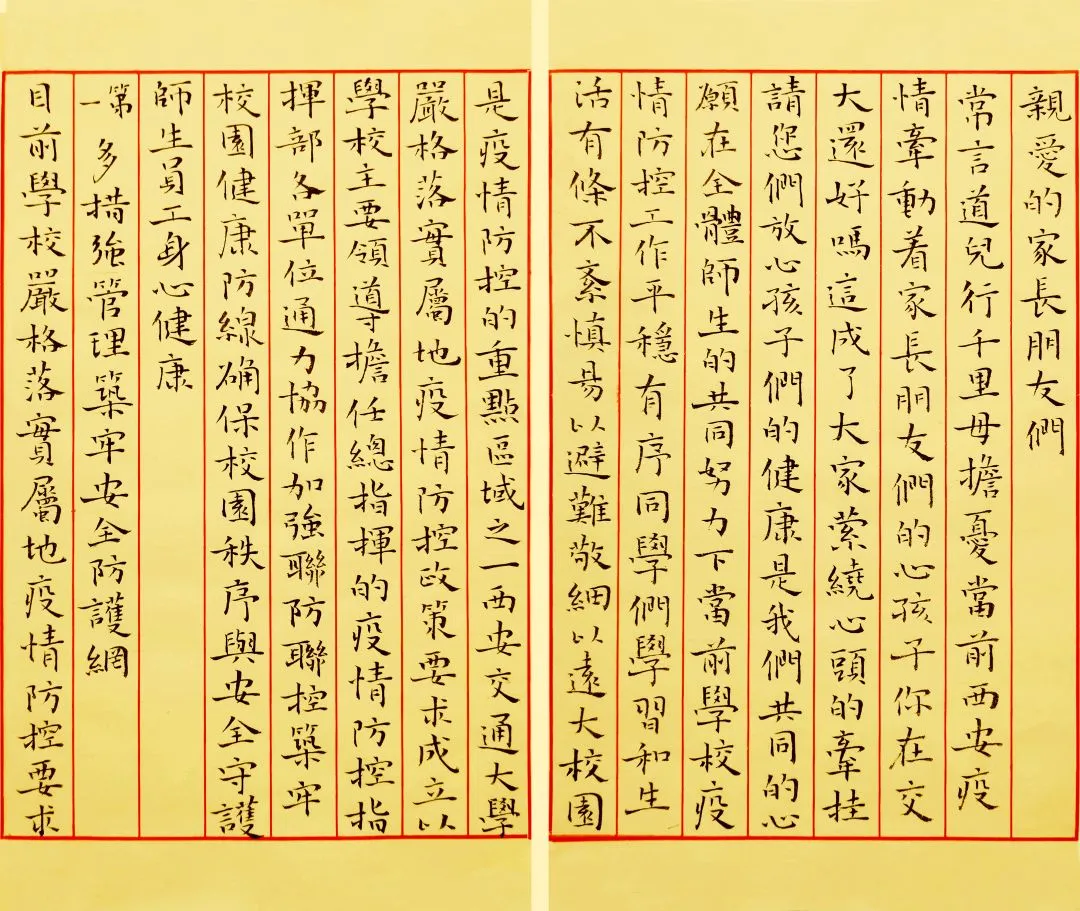 親愛的家長朋友們
常言道兒行千里母擔憂當前西安疫
情牽動着家長朋友們的心孩子你在交
大還好嗎這成了大家縈繞心頭的牽挂
請您們放心孩子們的健康是我們共同的心
願在全體師生的共同努力下當前學校疫
情防控工作平穩有序同學們學習和生
活有條不紊慎易以避難敬細以遠大校園
是疫情防控的重點區域之一西安交通大學
嚴格落實屬地疫情防控政策要求成立以
學校主要領導擔任總指揮的疫情防控指
揮部各單位通力協作加強聯防聯控築牢
校園健康防線确保校園秩序與安全守護
師生員工身心健康
第一 多措強管理築牢安全防護網
目前學校嚴格落實屬地疫情防控要求